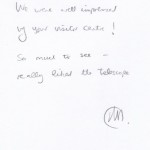 We were well impressed
by your visitor centre!
So much to see -
really liked the telescope